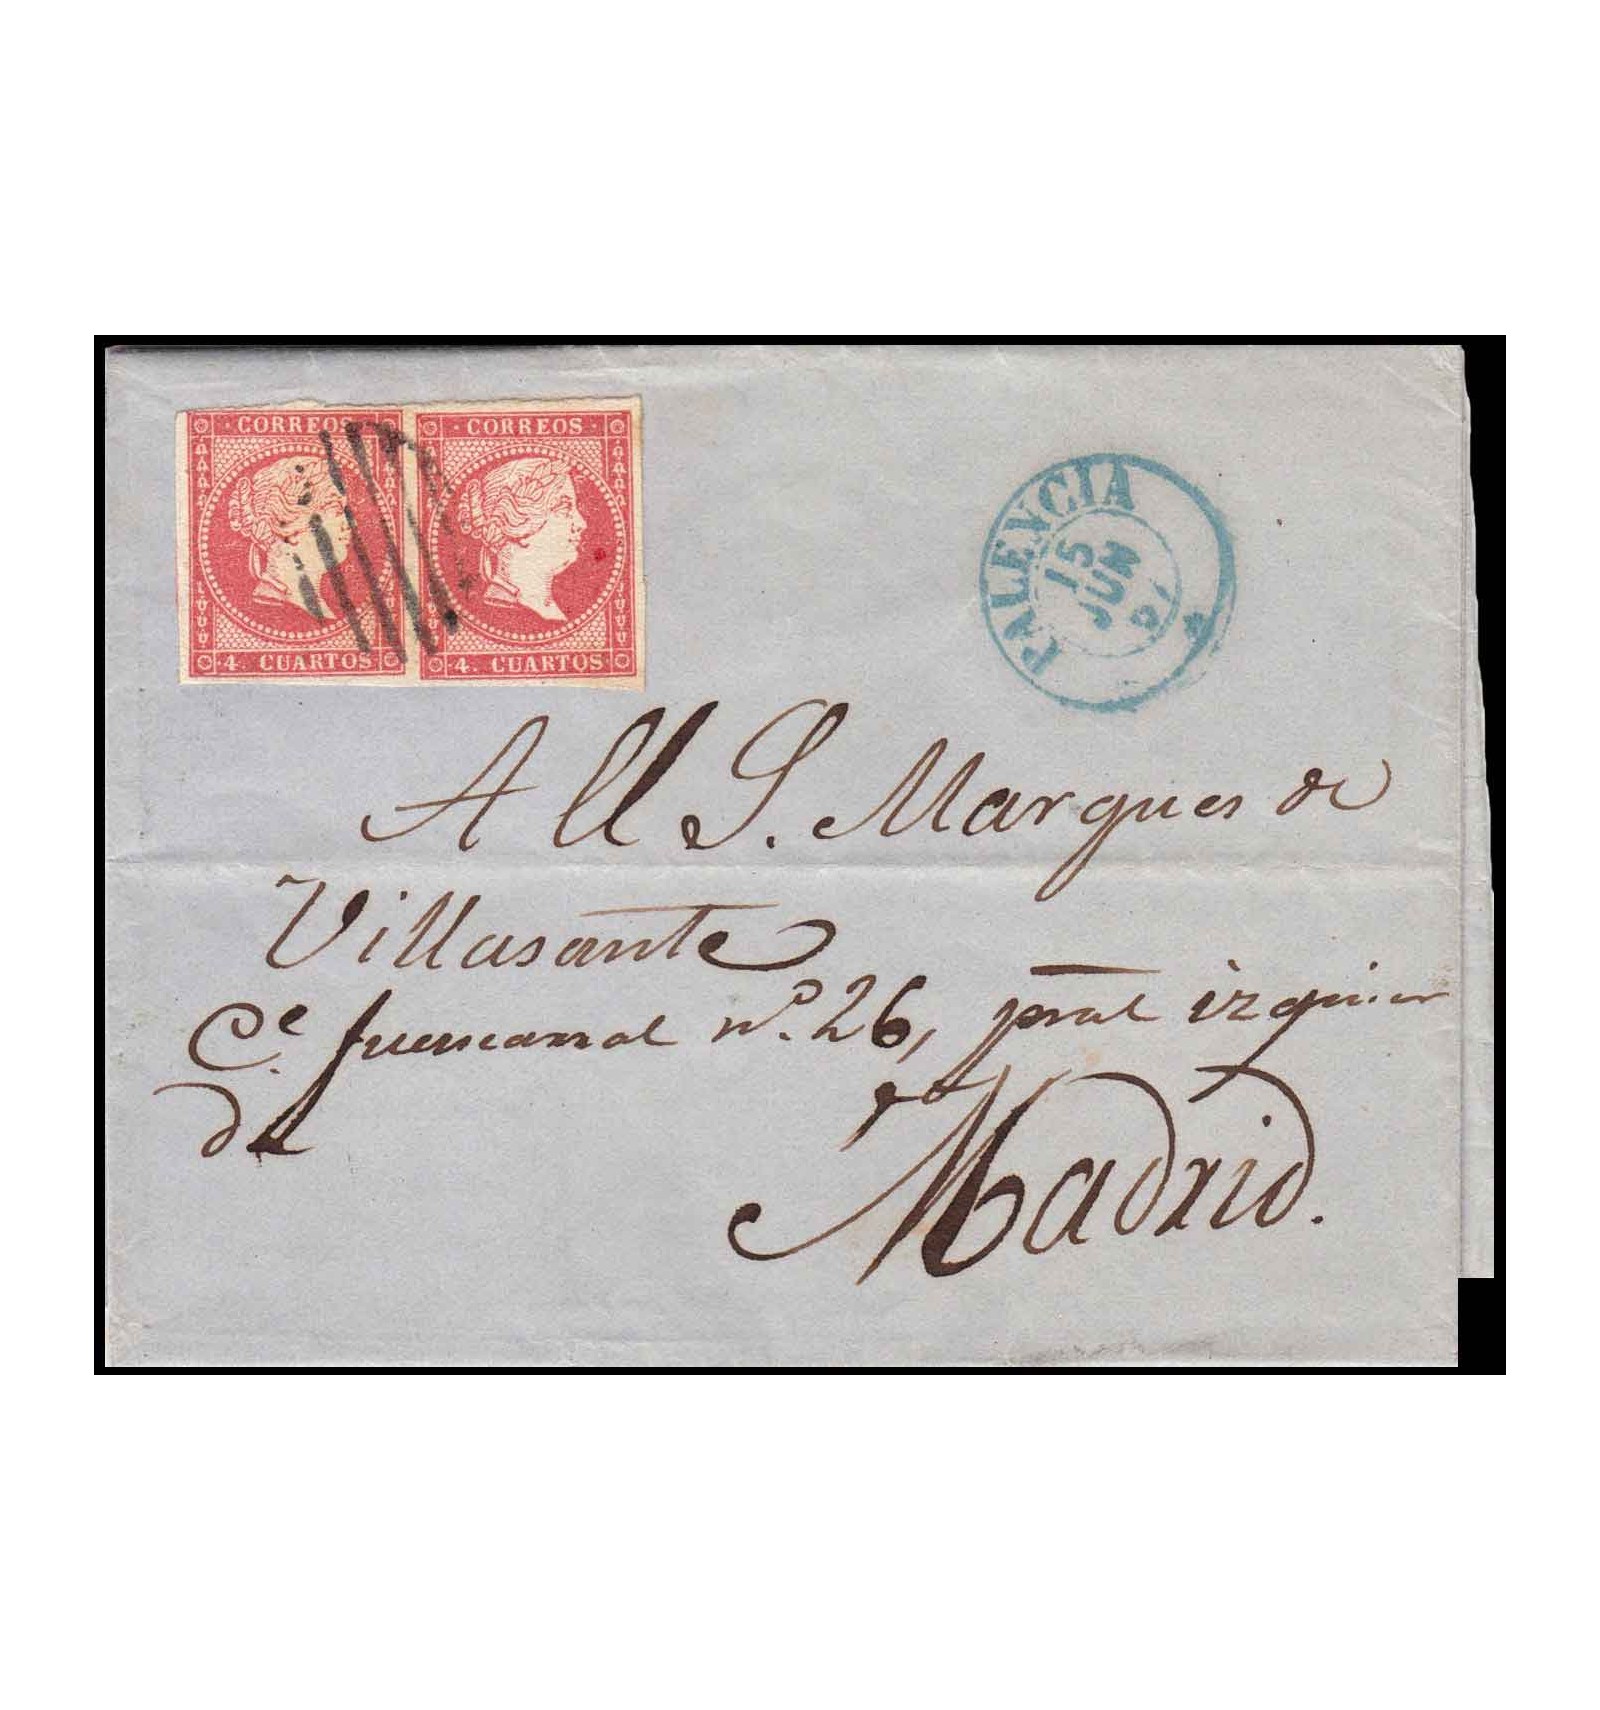 · CORREOS · · CORREOS ·
4. CUARTOS 4. CUARTOS
PALENCIA
15
JUN
57
A Ill S. Marques de
Villasante
Ce fuencarral nº. 26, pral izquier
da
Madrid.